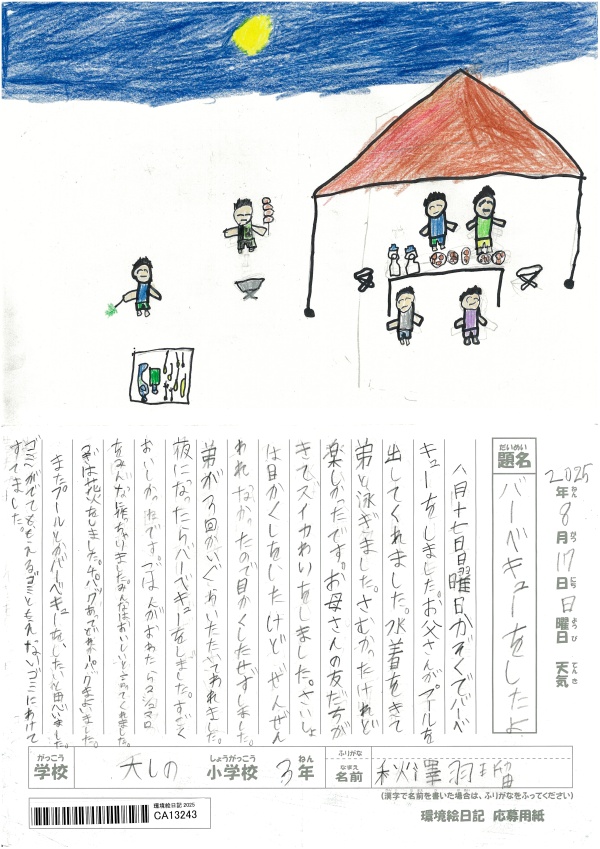 2025年8月17日日曜日 天気
ねん がつ にち ようび てんき
だいめい
題名
バーベキューをしたよ
八月十七日日曜日かぞくでバーベ
キューをしました。お父さんがプールを
出してくれました。水着をきて
弟と泳ぎました。さむかったけれど
楽しかったです。お母さんの友だちが
きてスイカわりをしました。さいしょ
は目かくしをしたけどぜんぜん
われなかったので目かくしなしでしました。
弟が3回かいぐらいたたいてわれました。
夜になったらバーベキューをしました。すごく
おいしかったです。ごはんがおわったらマシュマロ
をみんなに作っちゃいました。みんなはおいしいといってくれました。
つぎは花火をしました。
またプールとかバーベキューを、したいと思いました。
ゴミがでてともえる。ゴミともえないゴミにわけて
すてました。
がっこう しょうがっこう ねん なまえ ふりがな
学校 大しの 小学校 3年 名前 秋澤羽瑠
(漢字で名前を書いた場合は、ふりがなをふってください)
環境絵日記 2025
CA13243
環境絵日記 応募用紙